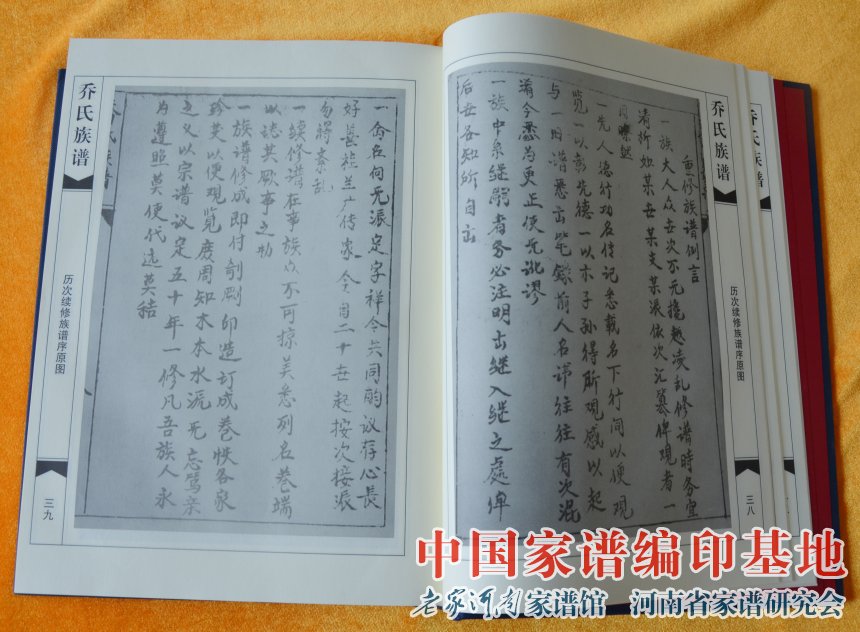 乔氏族谱
乔氏族谱
历次续修族谱序原图
三八
重修族谱例言
一族大人众世次不无搀越凌乱修谱时务宜
清析如某世某支某派依次汇纂俾观者一
目瞭然
一先人德行功名传记悉载名下行间以便观
览一以彰先德一以示子孙得所观感以起
与一旧谱悉出笔録前人名讳往往有次混
淆今悉为更正使无讹谬
一族中承继嗣者务必注明出继入继之處俾
后世各知所自出
一命名向无派定字祥今共同酌议存心长
好善桂兰广传家今自二十世起按次接派
勿得紊乱
一续修谱在事族众不可掠美悉列名卷端
以誌其厥事之
一族谱修成即付剞劂印造订成卷帙各家
珍 以便观览庶周知木本水源无忘篤亲
之义以宗谱议定五十年一修凡吾族人永
为遵照莫便代远莫稽
乔氏族谱
乔氏族谱
历次续修族谱序原图
三九
中国家谱编印基地
老家河南家谱馆 河南省家谱研究会